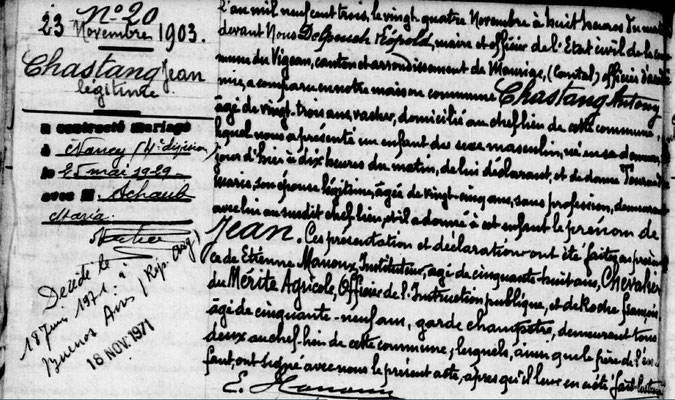 N° 20
23 Novembre 1903.
Chastang Jean
légitime.
a contracté mariage
à Nancy (4e division)
le 25 mai 1929
avec M. Schaub
Maria.
Décédé le
18 Juin 1971 à
Buenos Aires (Rép. Arg)
18 NOV. 1971
L'an mil neuf cent trois, le vingt quatre Novembre à huit heures du matin
devant Nous Léopold, maire et officier de l'Etat civil de la com-
mune du Vigean, canton et arrondissement de Mauriac, (Cantal) officier d'acadé-
mie, a comparu en notre maison commune Chastang Antony
âgé de vingt-trois ans, vacher, domicilié au chef lieu de cette commune,
lequel nous a présenté un enfant du sexe masculin, né en sa demeure,
jour d'hier à dix heures du matin, de lui déclarant, et de dame
Marie, son épouse légitime, âgée de vingt-cinq ans, sans profession, demeurant
avec lui au susdit chef lieu, et il a donné à cet enfant le prénom de
Jean. Ces présentation et déclaration ont été faites en présen-
ce de Etienne Manoux, Instituteur, âgé de cinquante huit ans, Chevalier
du Mérite Agricole, Officier de l'Instruction publique, et de Roche François
âgé de cinquante-neuf ans, garde champêtre, demeurant tous
deux au chef lieu de cette commune; lesquels, ainsi que le père de l'en-
fant, ont signé avec nous le présent acte, après qu'il leur en a été fait lecture.
E. Manoux